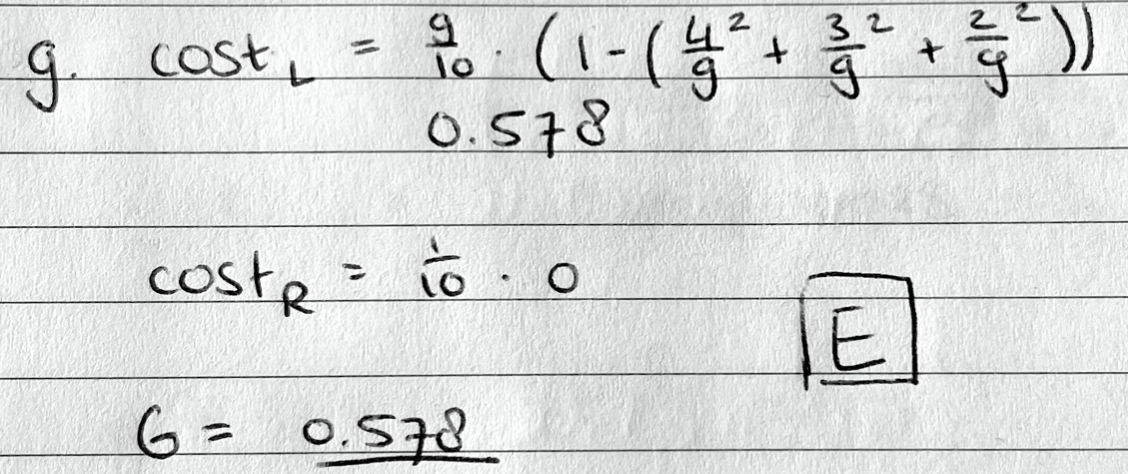 g. cost_L = 9/10 · (1-(4/9² + 3/9² + 2/9²))
0.578
cost_R = 1/10 · 0
E
G = 0.578